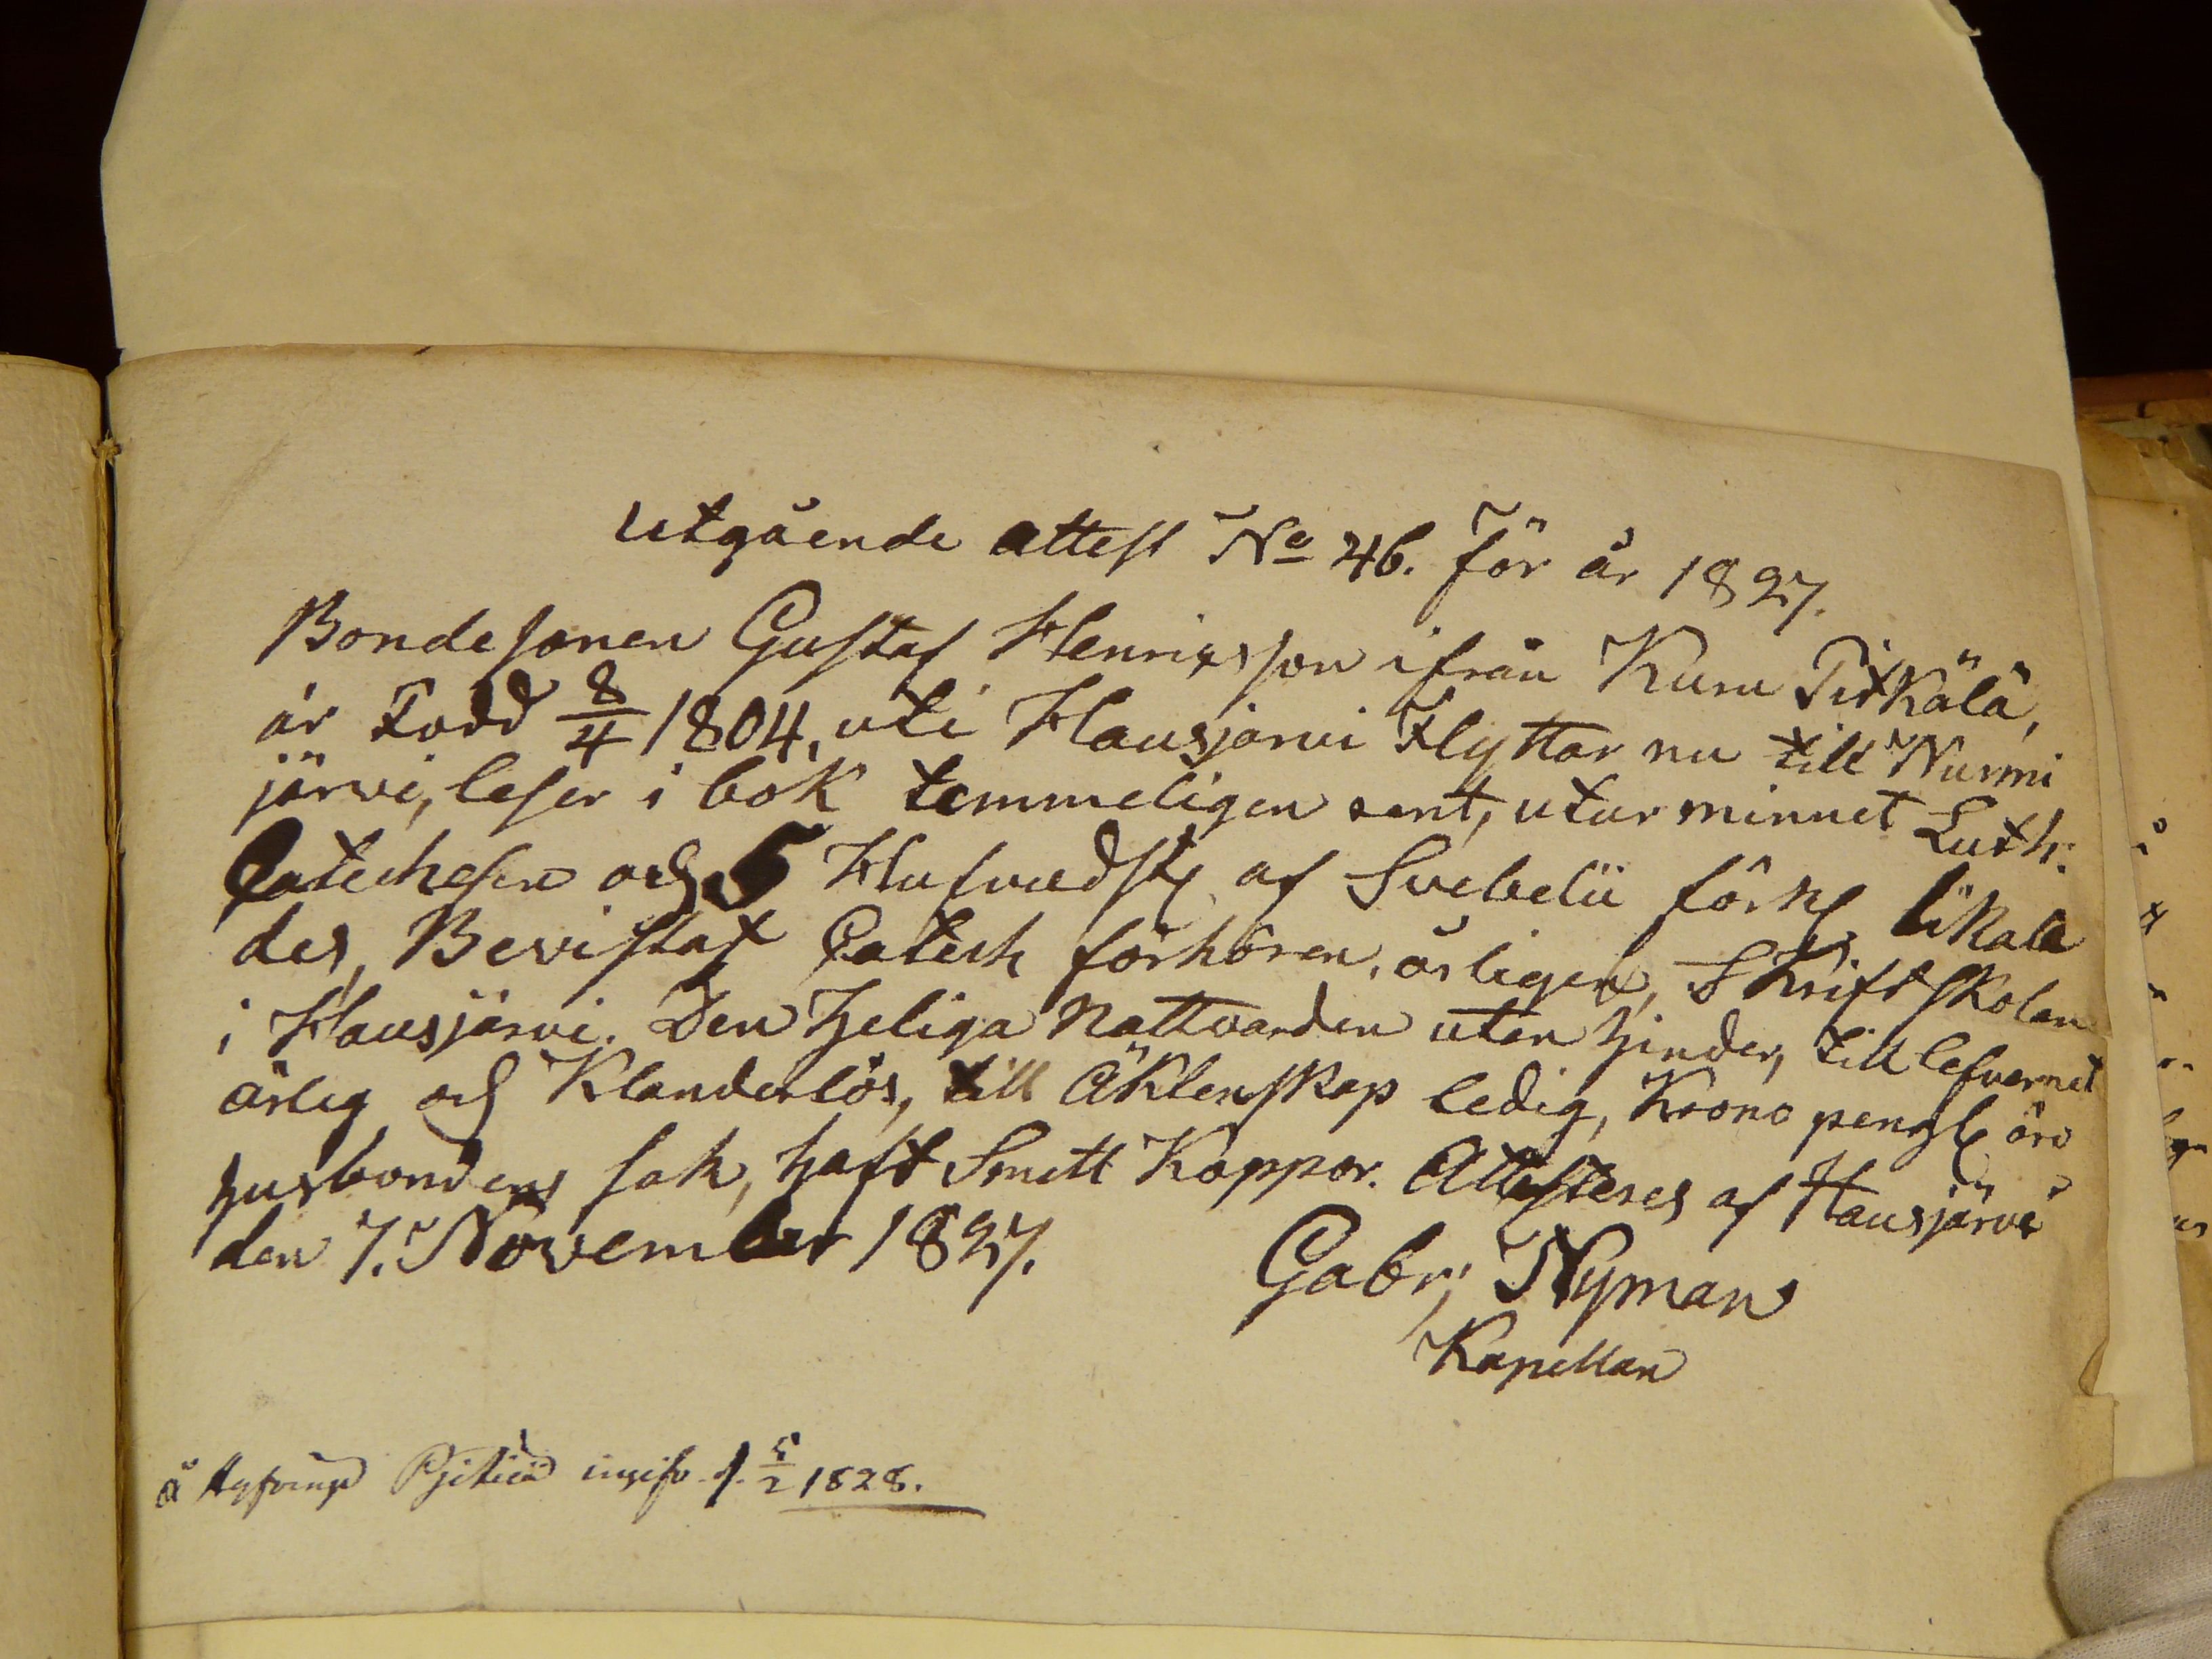 Utgående attest No 46. för år 1827.
Bondesonen Gustaf Henricsson ifrån Kuru Pitkälä,
är Född 8/4 1804, uti Hausjärvi Flyttar nu till Nurmi
järvi, leser i bok temmeligen rent, utur minnet Luth:
Catechesen och 5 Hufvudst af Svebelii förkl likale
des, Bevistat Catech förhören, årligen, Skriftskolan
i Hausjärvi. Den Heliga Nattvarden utan hinder, till lefvernet
ärlig och Klanderlös, till Äktenskap ledig, Krono peng äro
husbondens sak, haft Smitt Koppor. Attesteres af Hausjärvi
den 7. November 1827.
Gabr; Nyman
Kapellan
å 5/2 1828.